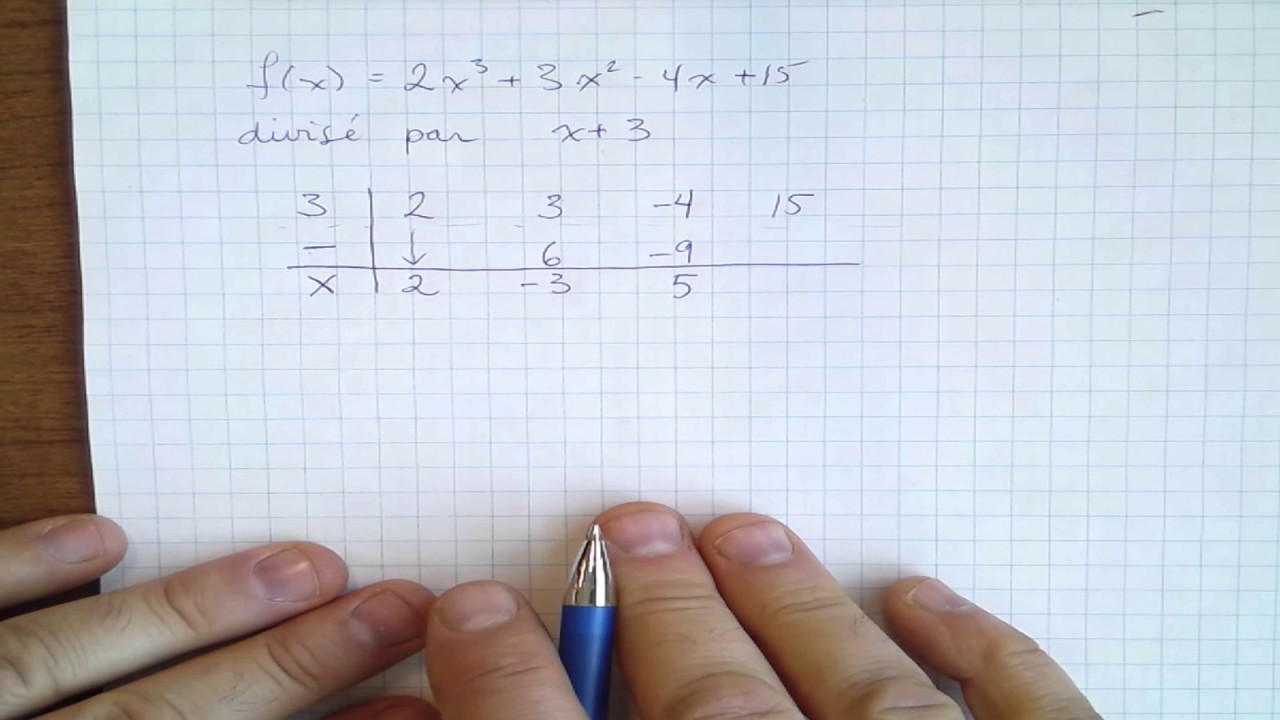 f(x) = 2x³ + 3x² - 4x + 15
divisé par x + 3
3 2 3 -4 15
— ↓ 6 -9
x 2 -3 5